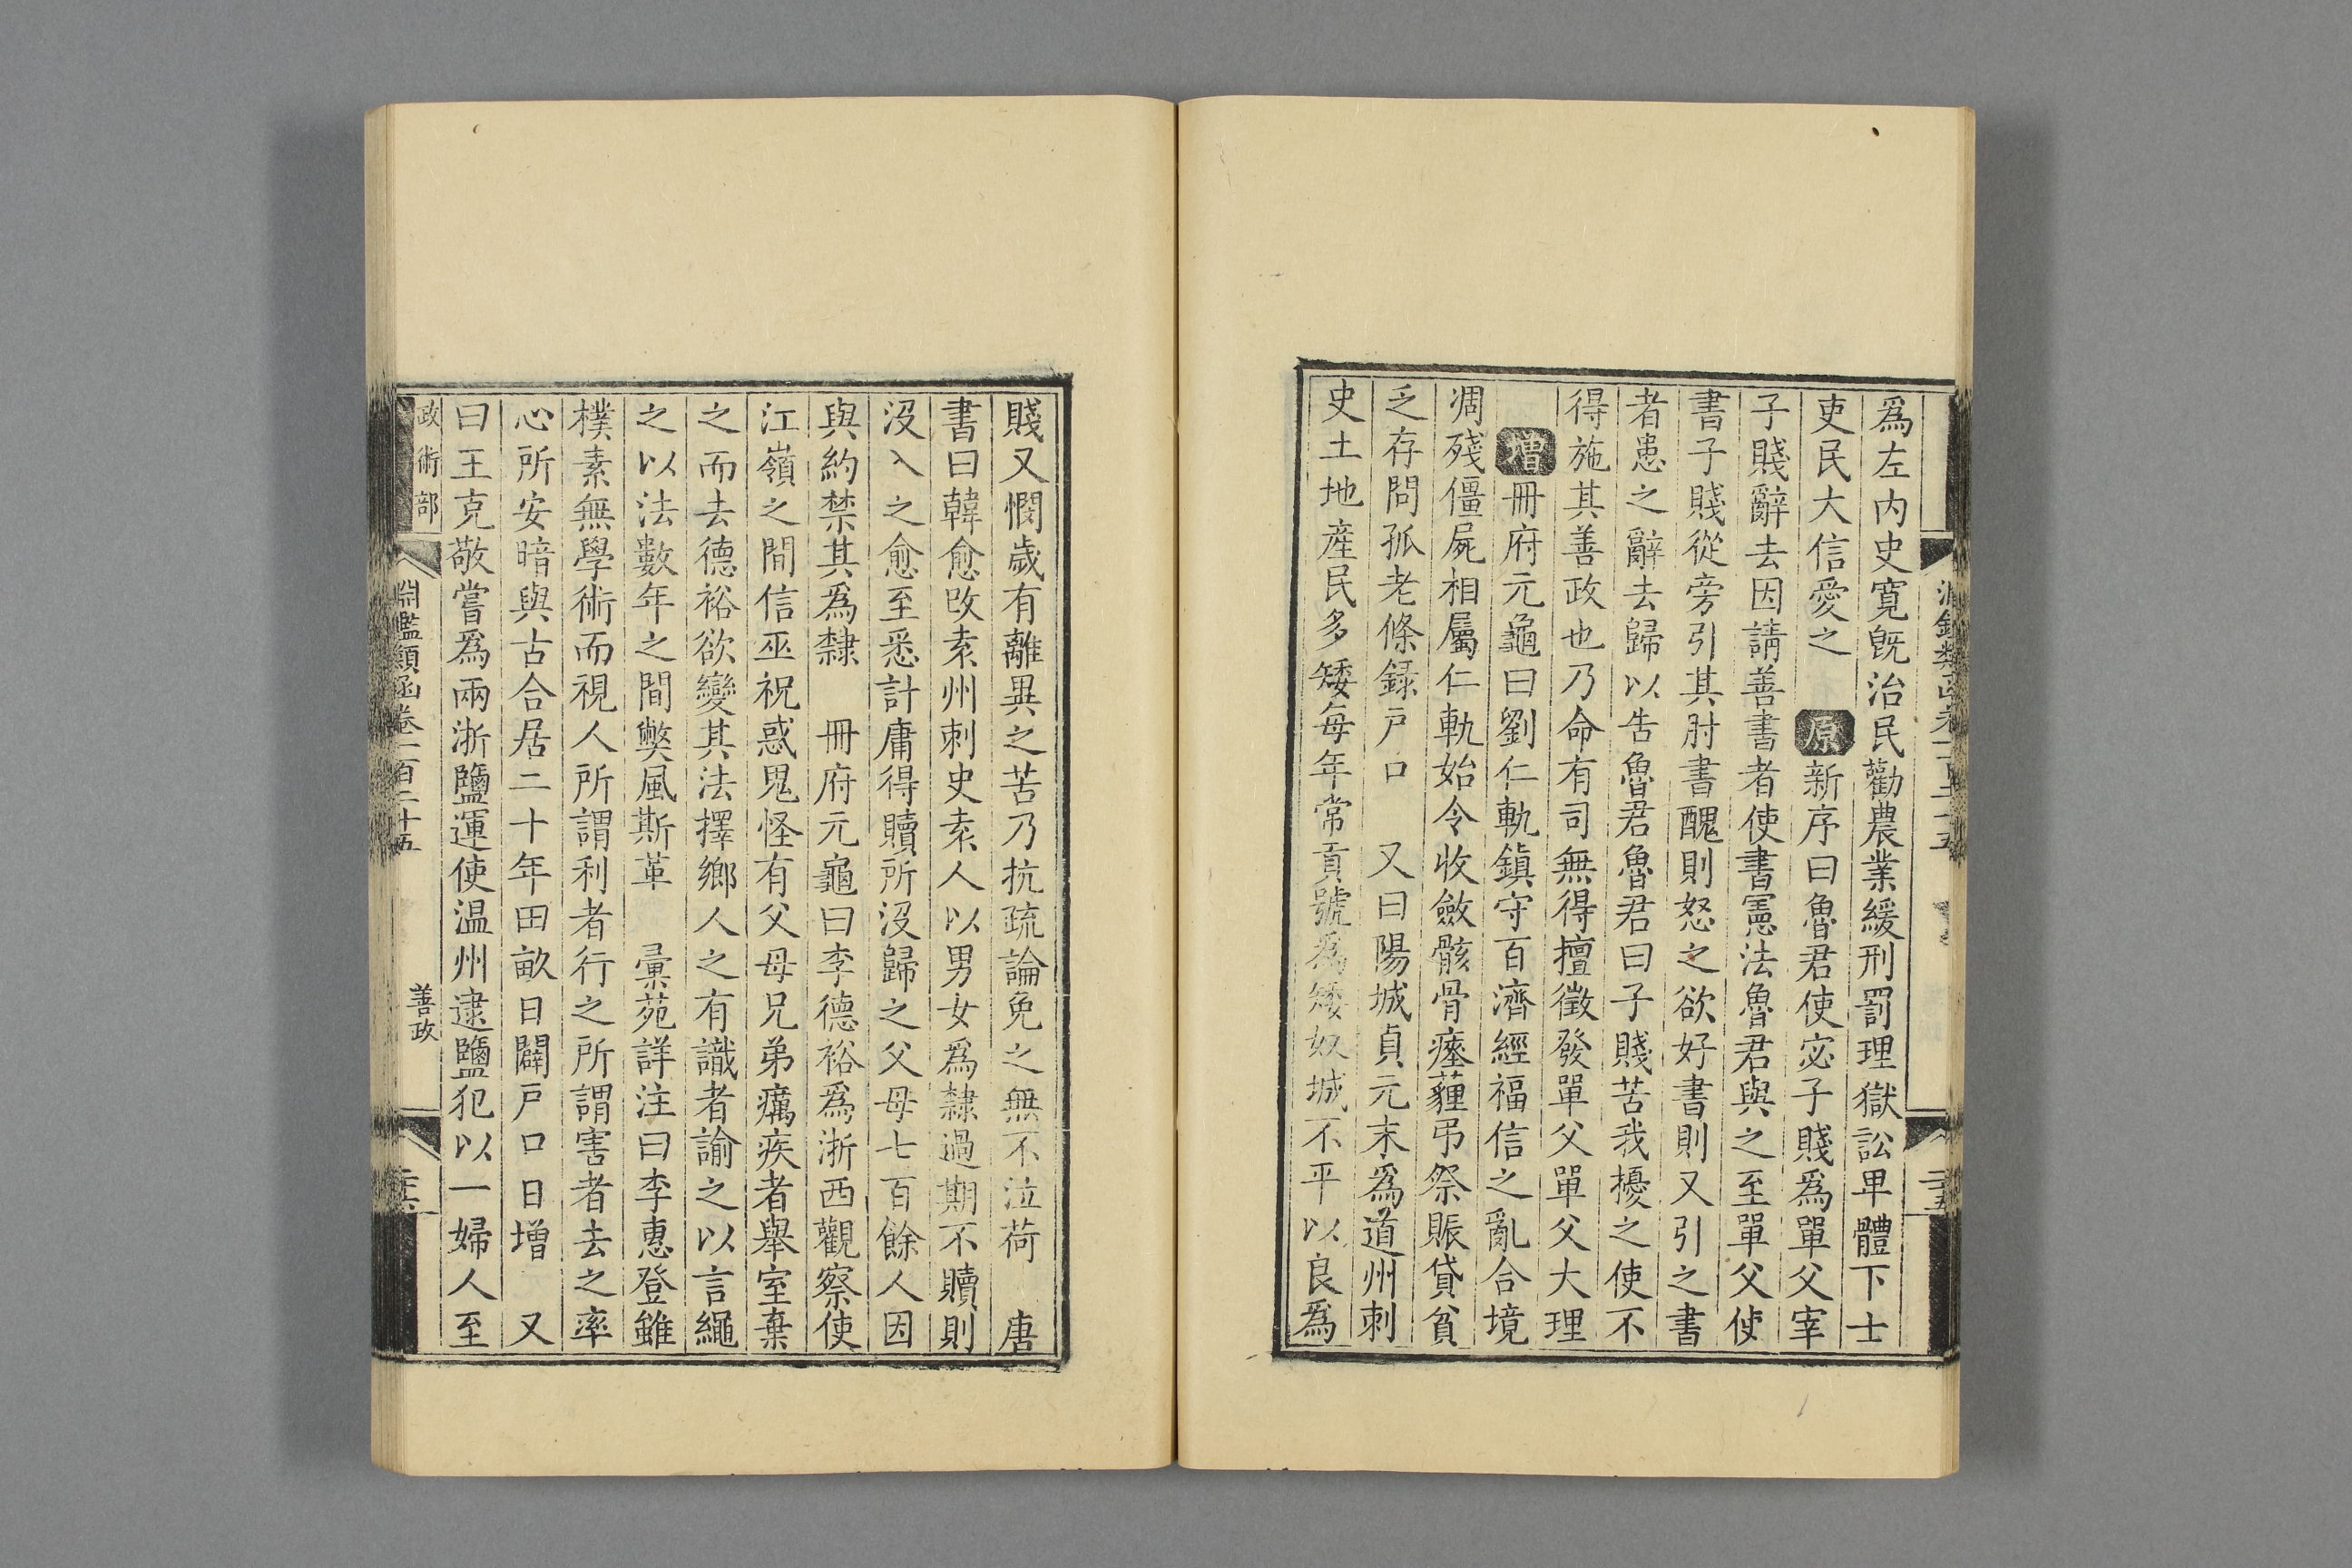 爲左内史寛旣治民勸農業緩刑罰理獄訟卑體下士
吏民大信愛之 原 新序曰魯君使宓子賤爲單父宰
子賤辭去因請善書者使書憲法魯君與之至單父使
書子賤從旁引其肘書醜則怒之欲好書則又引之書
者患之辭去歸以告魯君魯君曰子賤苦我擾之使不
得施其善政也乃命有司無得擅徵發單父單父大理
增 冊府元龜曰劉仁軌鎮守百濟經福信之亂合境
凋殘僵屍相屬仁軌始令收斂骸骨瘞薶弔祭賑貸貧
乏存問孤老條録戸口 又曰陽城貞元末爲道州刺
史土地産民多矮每年常貢號爲矮奴城不平以良爲
賤又憫歲有離異之苦乃抗疏論免之無不泣荷 唐
書曰韓愈改袁州刺史袁人以男女爲隸過期不贖則
沒入之愈至悉計庸得贖所沒歸之父母七百餘人因
與約禁其爲隸 冊府元龜曰李德裕爲浙西觀察使
江嶺之間信巫祝惑鬼怪有父母兄弟癘疾者舉室棄
之而去德裕欲變其法擇鄉人之有識者諭之以言繩
之以法數年之間弊風斯革 彙苑詳注曰李惠登雖
樸素無學術而視人所謂利者行之所謂害者去之率
心所安暗與古合居二十年田畝日闢戸口日增 又
曰王克敬嘗爲兩浙鹽運使温州逮鹽犯以一婦人至
政術部 淵鑑類函卷一百二十五 善政 二十六